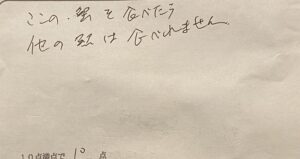 ここの鍋を食べたら
他の鍋は食べれません。
10点満点で 10 点